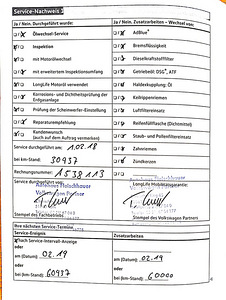 Service-Nachweis 1
Ja / Nein. Durchgeführt wurde:
Ölwechsel-Service
Inspektion
mit Motorölwechsel
mit erweitertem Inspektionsumfang
LongLife Motoröl verwendet
Korrosions- und Dichtheitsprüfung der Erdgasanlage
Prüfung der Scheinwerfer-Einstellung
Reparaturempfehlung
Kundenwunsch
(auch auf dem Auftrag vermerken)
Service durchgeführt am: 1.02.18
bei km-Stand: 30937
Rechnungsnummer: 1538113
Service durchgeführt von:
Autohaus
Stempel des Fachbetriebs
Ja / Nein. Zusatzarbeiten – Wechsel von:
AdBlue®
Bremsflüssigkeit
Dieselkraftstofffilter
Getriebeöl: DSG®, ATF
Haldexkupplung: Öl
Keilrippenriemen
Luftfiltereinsatz
Reifenfülflasche (Dichtmittel)
Staub- und Pollenfiltereinsatz
Zahnriemen
Zündkerzen
LongLife Mobilitätsgarantie:
Stempel des Volkswagen Partners
Ihre nächsten Service-Termine
Service-Ereignis
Zusatzarbeiten
Nach Service-Intervall-Anzeige
oder
am (Datum): 02.19
am (Datum): 02.19
oder
oder
bei (km-Stand): 60937
bei (km-Stand): 60000